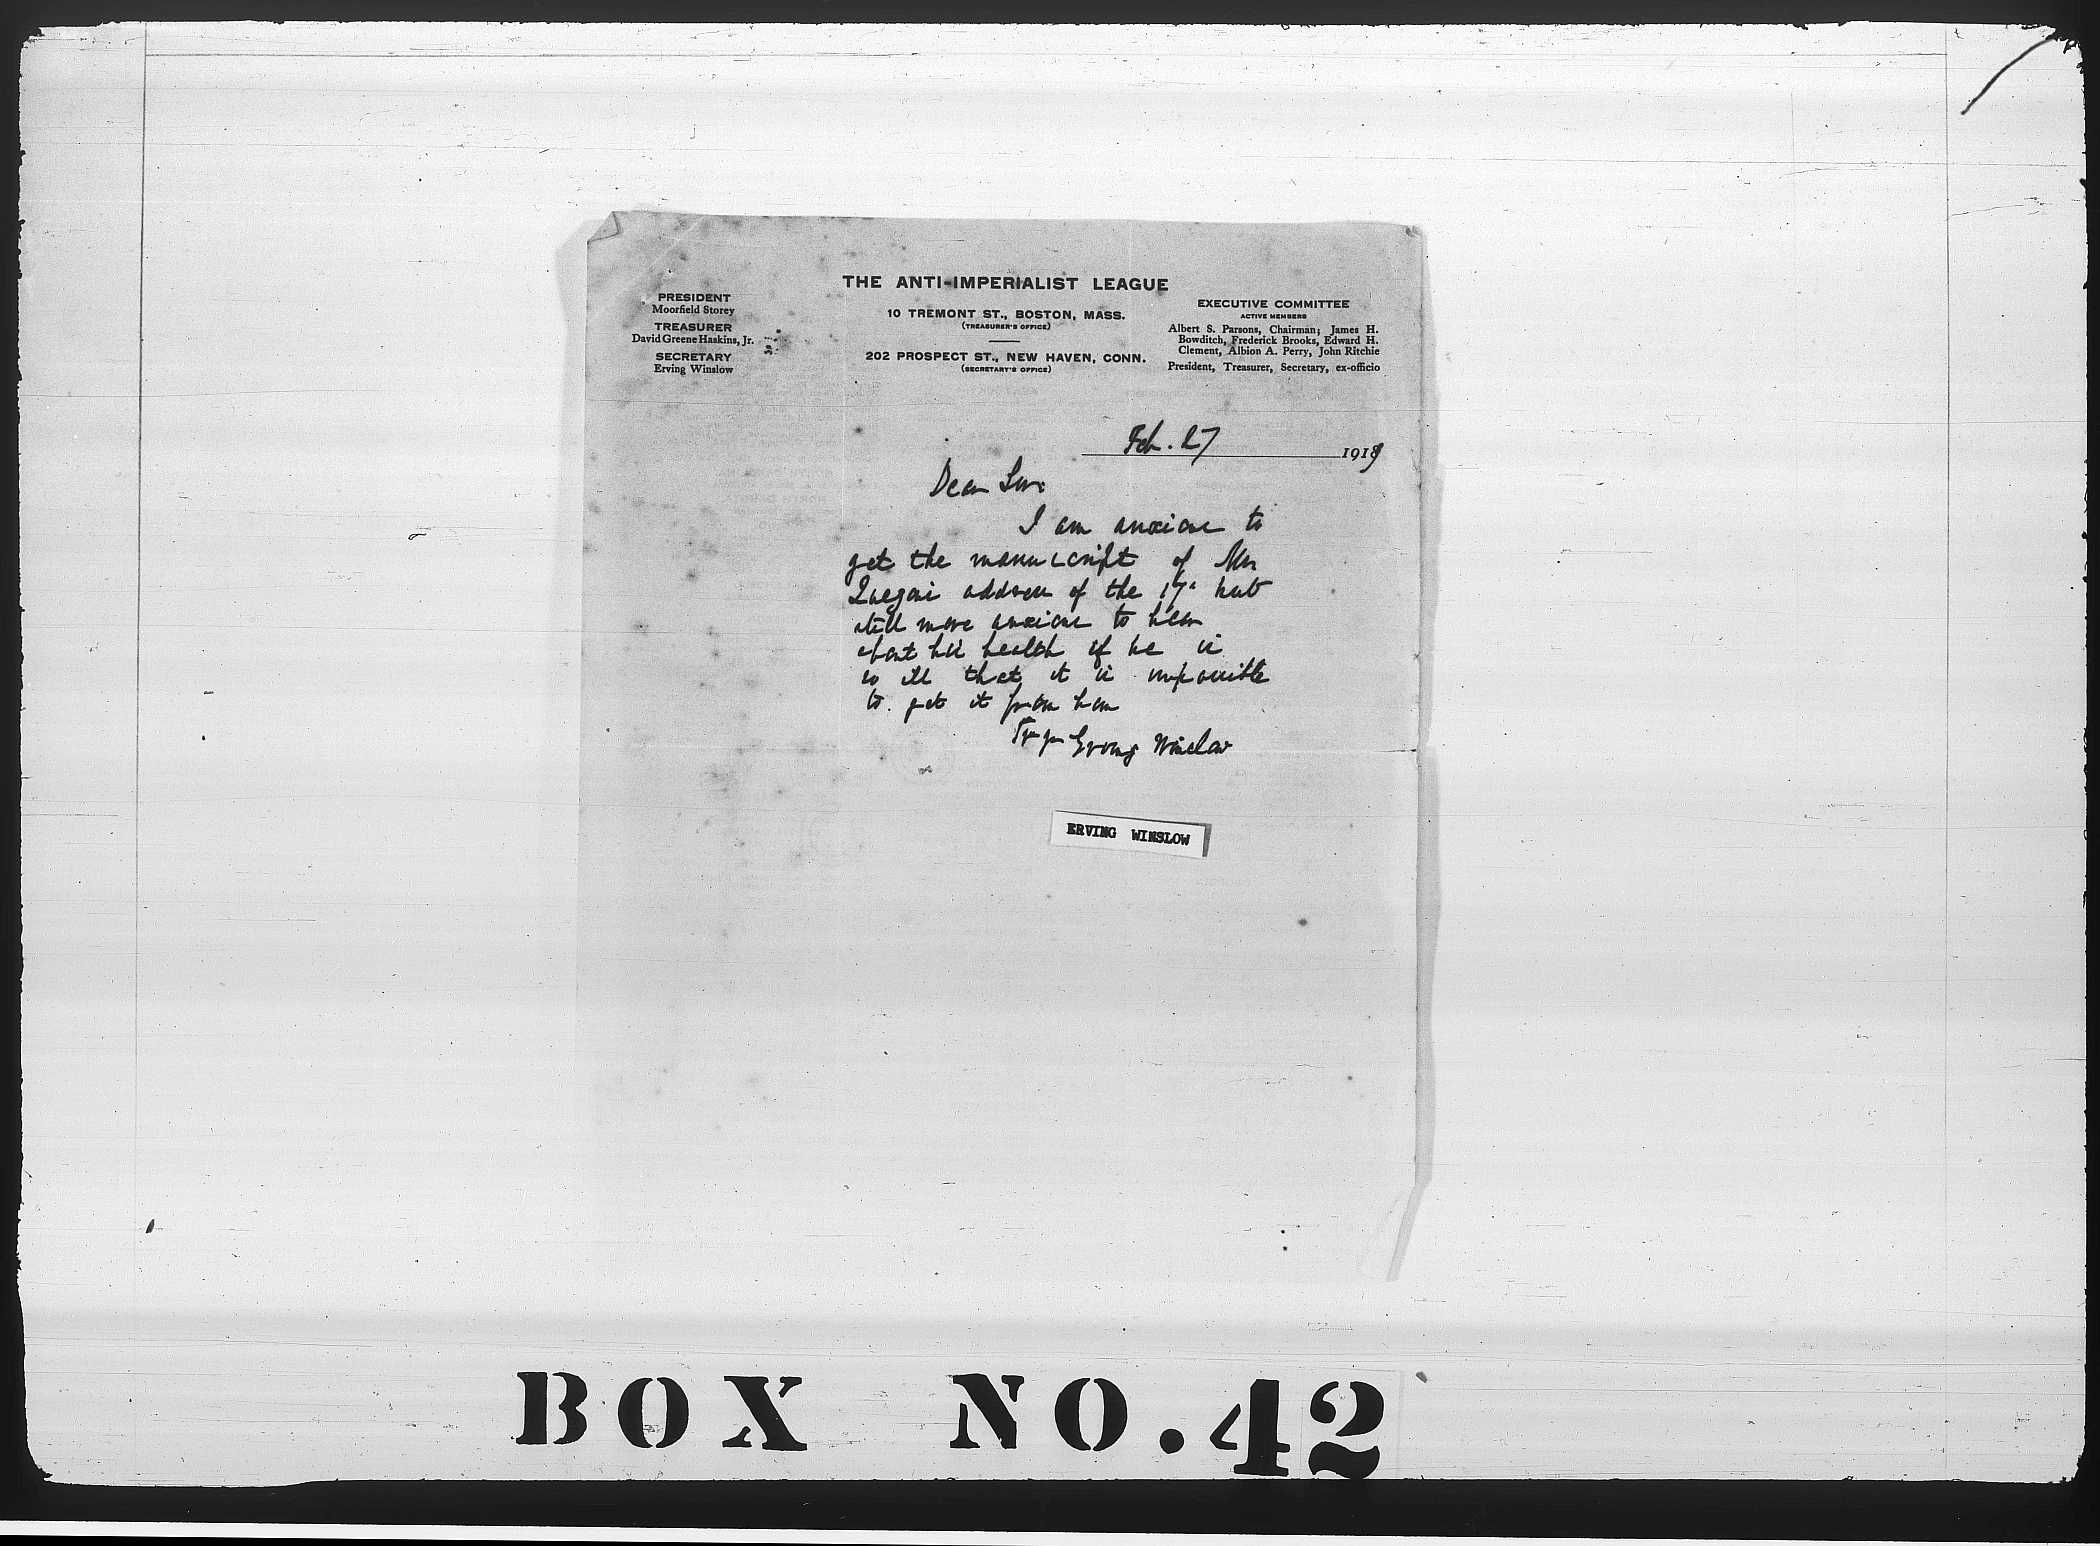 THE ANTI-IMPERIALIST LEAGUE
PRESIDENT
Moorfield Storey
TREASURER
David Greene Haskins, Jr.
SECRETARY
Erving Winslow
10 TREMONT ST., BOSTON, MASS.
(TREASURER'S OFFICE)
202 PROSPECT ST., NEW HAVEN, CONN.
(SECRETARY'S OFFICE)
EXECUTIVE COMMITTEE
ACTIVE MEMBERS
Albert S. Parsons, Chairman; James H.
Bowditch, Frederick Brooks, Edward H.
Clement, Albion A. Perry, John Ritchie
President, Treasurer, Secretary, ex-officio
Feb. 27 1919
Dear Sir:
I am anxious to
get the manuscript of Mr
address of the 17th but
still more anxious to hear
about his health if he is
so ill that it is impossible
to get it from him
Erving Winslow
ERVING WINSLOW
BOX NO. 42